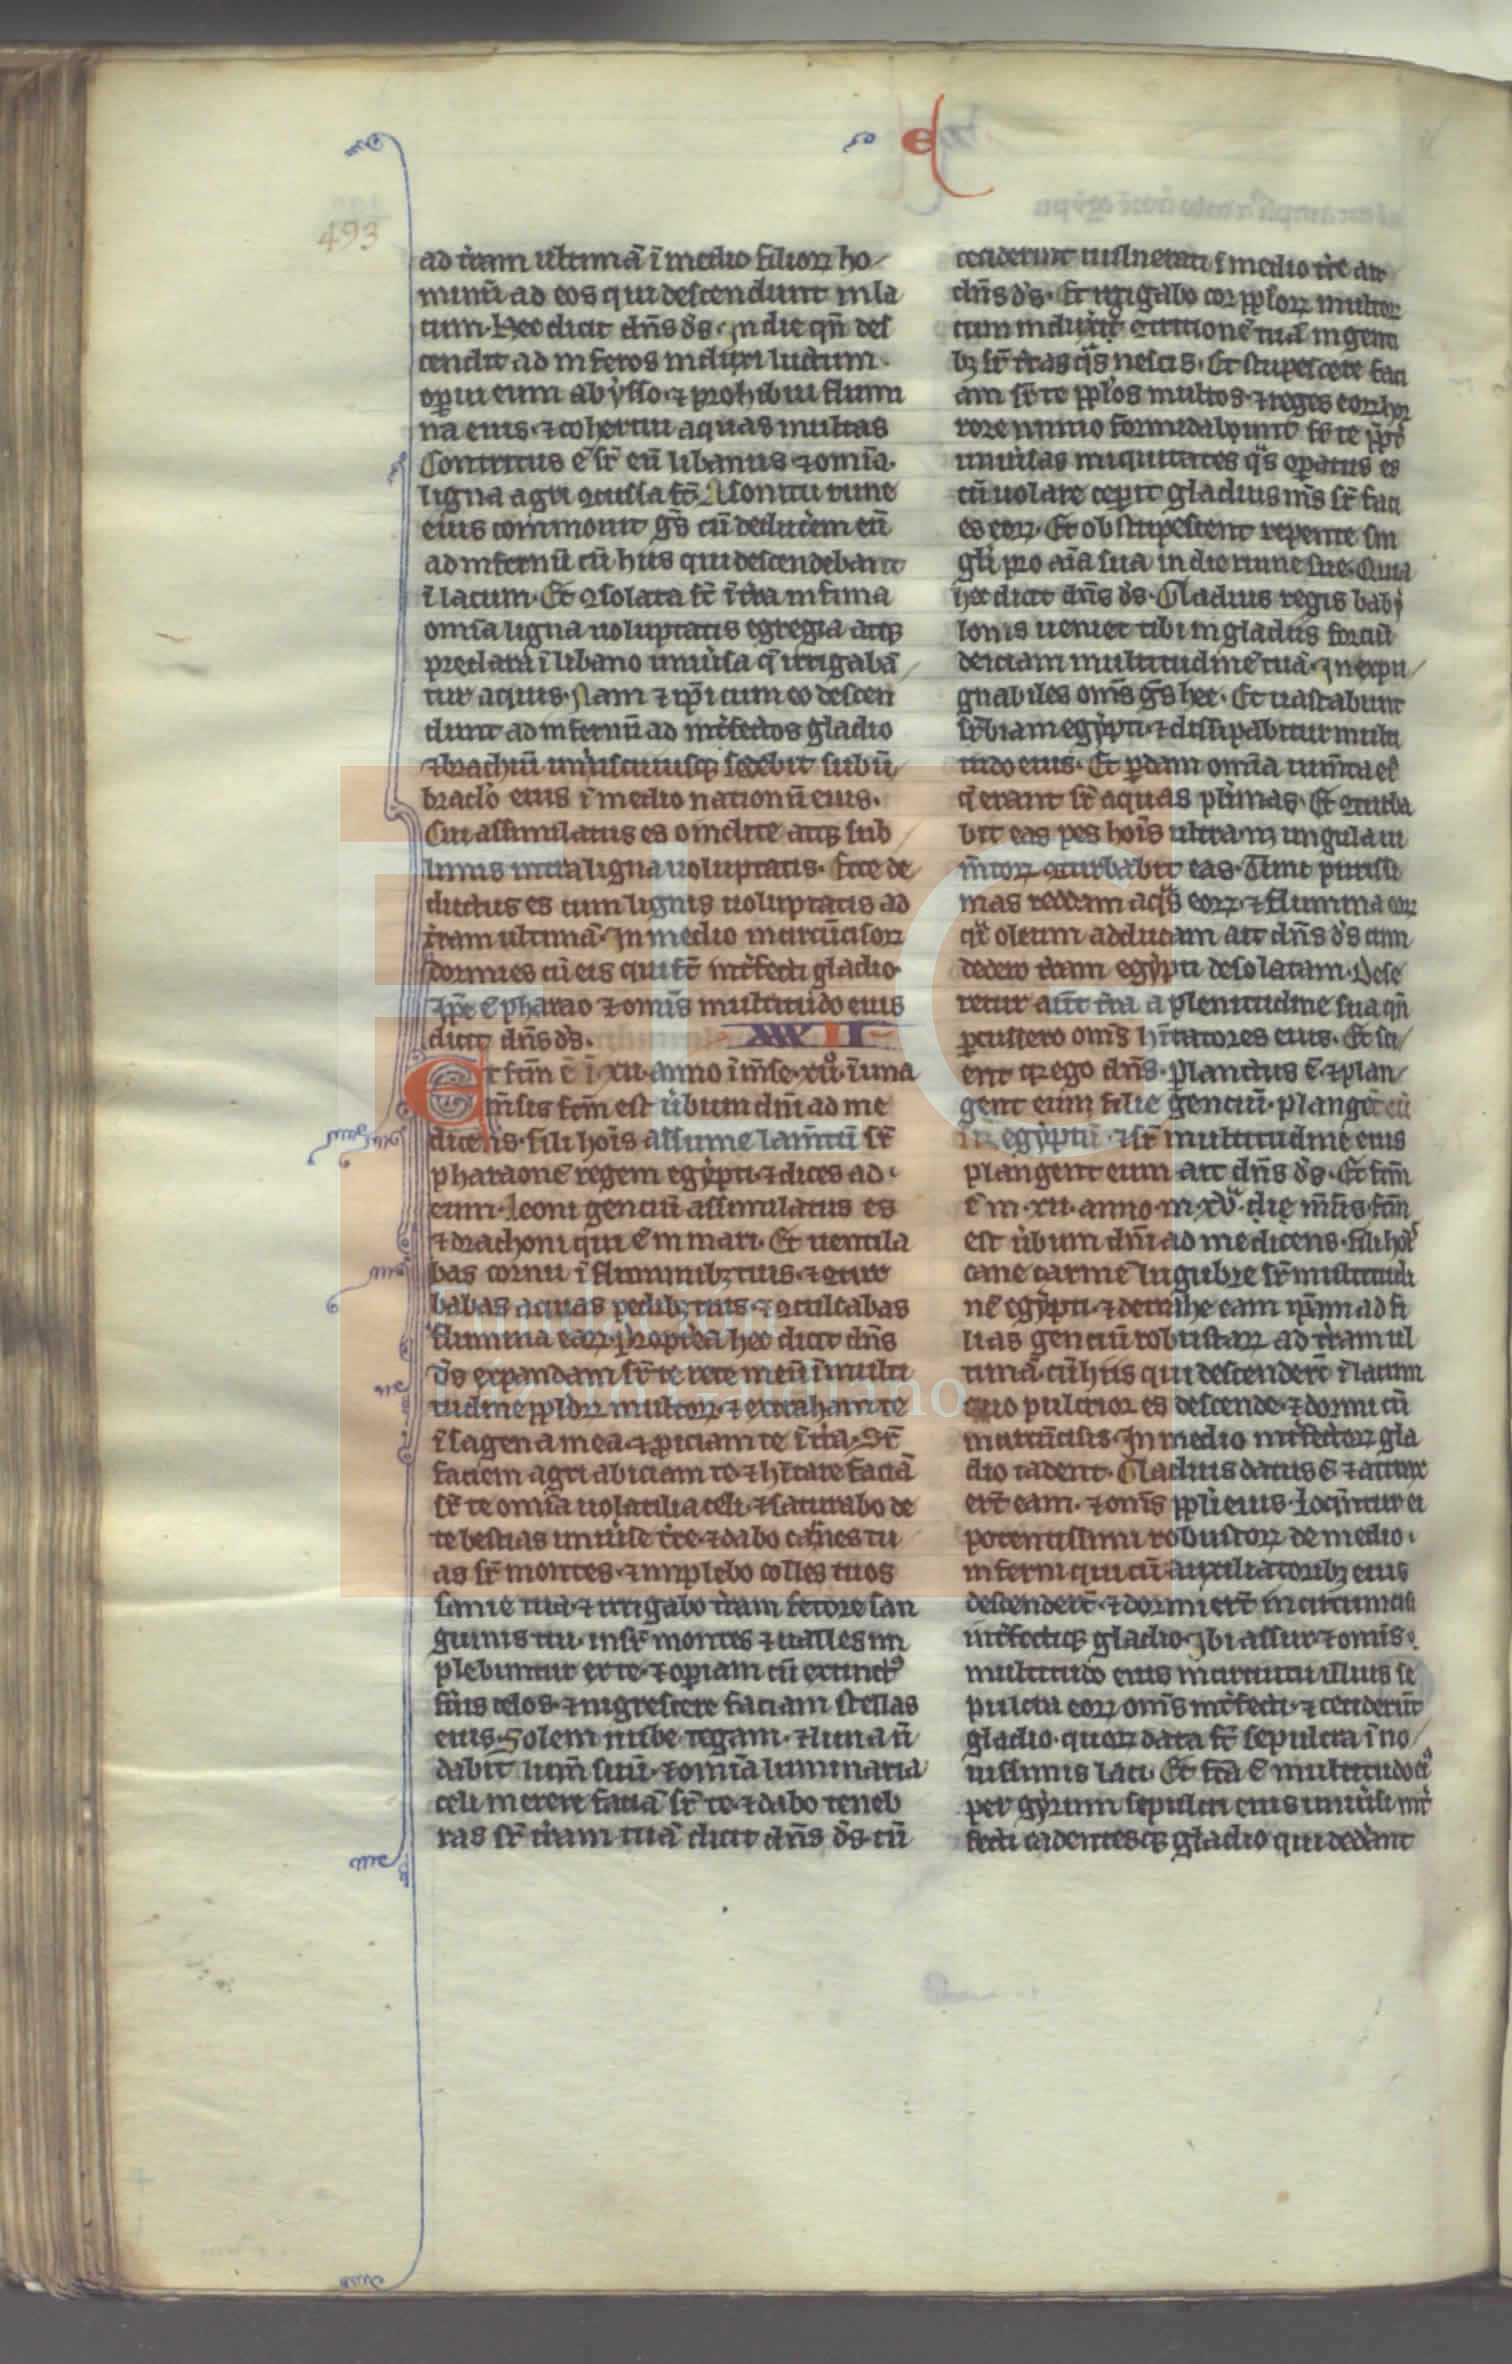 e
493
ad t̃ram ultimã ĩ medio filioꝝ ho
minũ ad eos qui descendunt in la
cum. Hec dicit dñs d̃s. In die qñ des
cendit ad inferos induxi luctum.
oꝑui eum abysso. ⁊ prohibui flumi
na eius. ⁊ cohercui aquas multas
Contritus ẽ sr̃ eũ libanus ⁊ omĩa.
ligna agri ꝯcussa st̃. A sonitu ruine
eius commoui gẽs cũ deducẽrem eũ
ad infernũ cũ hiis qui descendebant
ĩ lacum. Et ꝯsolata st̃ ĩ t̃ra infima
omĩa ligna uoluptatis egregia atqꝫ
preclara ĩ libano uniũsa q̃ irrigabã
tur aquis. Nam ⁊ ip̃i cum eo descen
dunt ad infernũ ad int̃fectos gladio
⁊ brachiũ uniuscuiusqꝫ sedebit sub ũ
braclo eius ĩ medio nationũ eius.
Cui assimilatus es o inclite atqꝫ sub
limis intra ligna uoluptatis. Ecce de
ductus es cum lignis uoluptatis ad
t̃ram ultimã. In medio incircũcisoꝝ
dormies cũ eis qui st̃ int̃fecti gladio.
⁊ip̃e ẽ pharao ⁊ omĩs multitudo eius
dicit dñs d̃s. XXXII
Et fc̃m ẽ ĩ. xii. anno ĩ m̃se. xiiº. ĩ una
m̃sis fc̃m est ũbum dñi ad me
dicens. fili hoĩs assume lam̃tũ sr̃
pharaonẽ regem egypti. ⁊ dices ad.
eum. Leoni genciũ assimilatus es
⁊ drachoni qui ẽ in mari. Et uentila
bas cornu ĩ fluminibꝫ tuis. ⁊ ꝯtur
babas aquas pedibꝫ tuis. ⁊ ꝯculcabas
flumina eaꝝ. Propterea hec dicit dñs
d̃s expandam sr̃ te rete meũ ĩ multi
tudine pploꝝ multoꝝ. ⁊ extraham te
ĩ sagena mea. ⁊ ꝓiciam te ĩ t̃ra. Sr̃
faciem agri abiciam te. ⁊ h̃itare faciã
sr̃ te omĩa uolatilia celi. ⁊ saturabo de
te bestias uniũse t̃re. ⁊ dabo carnes tu
as sr̃ montes. ⁊ implebo colles tuos
sanie tua. ⁊ irrigabo t̃ram fetore san
guinis tui. insr̃ montes ⁊ ualles im
plebuntur ex te. ⁊ oꝑiam cũ extinctꝰ
fũis celos. ⁊ nigrescere faciam stellas
eius. Solem nube tegam. ⁊ luna ñ
dabit lum̃ suũ. ⁊ omĩa luminaria
celi merere faciã sr̃ te. ⁊ dabo teneb
ras sr̃ t̃ram tuã dicit dñs d̃s. cũ
ceciderint uulnerati ĩ medio t̃re ait
dñs d̃s. Et irrigabo cor pploꝝ multoꝝ
cum induxero ꝯtritionẽ tuã in genti
bꝫ sr̃ t̃ras q̃s nescis. Et stupescere faci
am sr̃ te pplos multos. ⁊ reges eoꝝ hor
rore nimio formidabunt sr̃ te ꝓp̃t
uniũsas iniquitates q̃s oꝑatus es
cũ uolare ceperit gladius m̃s sr̃ faci
es eoꝝ. Et obstupescent repente sin
guli pro aĩa sua in die ruine sue. Quia
hec dicit dñs d̃s. Gladius regis baby
lonis ueniet tibi in gladiis forciũ
deiciam multitudinẽ tuã. Inexpu
gnabiles omẽs gẽs hee. Et uastabunt
suꝑbiam egypti. ⁊ dissipabitur multi
tudo eius. Et ꝑdam omĩa iumẽta eiꝰ
q̃ erant sr̃ aquas plurimas. Et ꝯturba
bit eas pes hoĩs ultra. nꝫ ungula iu
m̃toꝝ ꝯturbabit eas. Tunc purissi
mas reddam aq̃s eoꝝ. ⁊ flumina eoꝝ
q̃i oleum adducam ait dñs d̃s cum
dedero t̃ram egypti desolatam. Dese
retur aut̃ t̃ra a plenitudine sua qñ
ꝑcussero omẽs h̃itatores eius. Et sci
ent qꝛ ego dñs. Planctus ẽ. ⁊ plan
gent eum filie genciũ. plangẽt eũ
egyptũ. ⁊ sr̃ multitudinẽ eius
plangent eum ait dñs d̃s. Et fc̃m
ẽ in. xii. anno. in. xvª. die m̃sis. fc̃m
est ũbum dñi ad me dicens. fili hoĩs
cane carmẽ lugubre sr̃ multitudi
nẽ egypti. ⁊ detrahe eam ip̃am ad fi
lias genciũ robustaꝝ ad t̃ram ul
timã. cũ hiis qui descenderũt ĩ lacum
quo pulcrior es descende. ⁊ dormi cũ
incircũcisis. In medio int̃fectoꝝ gla
dio cadent. Gladius datus ẽ ⁊ attrax
erũt eam. ⁊ omẽs ppli eius. Loquntur ei
potentissimi robustoꝝ de medio.
inferni qui cũ auxiliatoribꝫ eius
descenderũt. ⁊ dormierũt incircumcisi
int̃fectiqꝫ gladio. Ibi assur ⁊ omĩs.
multitudo eius in circuitu illius se
pulcra eoꝝ omẽs int̃fecti. ⁊ ceciderũt
gladio. quoꝝ data st̃ sepulcra ĩ no
uissimis laci. Et fc̃a ẽ multitudo eĩ
per gyrum sepulcri eius uniũsi int̃
fecti cadentesqꝫ gladio qui dederant